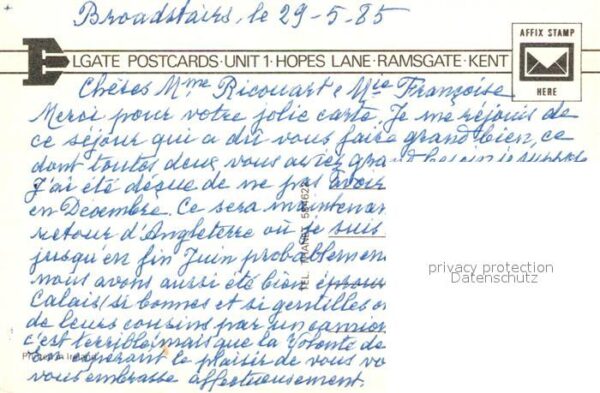 Broadstairs, le 29-5-85
AFFIX STAMP
HERE
ELGATE POSTCARDS · UNIT 1 · HOPES LANE · RAMSGATE · KENT
Chères Mme Ricouart e Mie Françoise
Merci pour votre jolie carte. Je me réjouis de
ce séjour qui a dû vous faire grand bien, ce
dont toutes deux vous aviez grand besoin je suppose
J'ai été déçue de ne pas avoir
en Décembre. Ce sera maintenan
retour d'Angleterre où je suis
jusqu'en fin Juin probablemen
nous avons aussi été bien éprou
Calais (si bonnes et si gentilles
de leurs cousins par un camion
c'est terrible mais que la Volonté de
En espérant le plaisir de vous vo
vous embrasse affectueusement.
TEL. THANET
privacy protection
Datenschutz